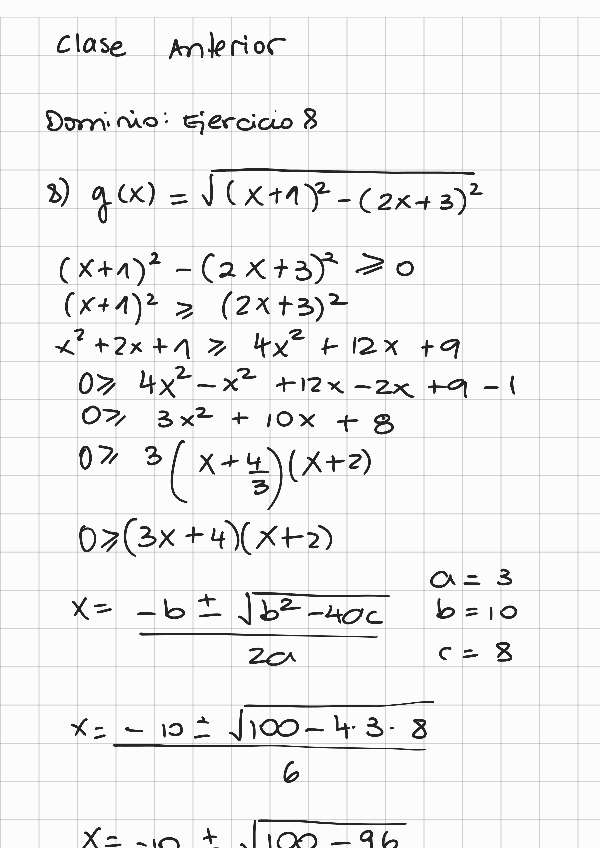 Clase Anterior
Dominio: Ejercicio 8
8) g(x) = √((x+1)² - (2x+3)²)
(x+1)² - (2x+3)² ⩾ 0
(x+1)² ⩾ (2x+3)²
x² + 2x + 1 ⩾ 4x² + 12x + 9
0 ⩾ 4x² - x² + 12x - 2x + 9 - 1
0 ⩾ 3x² + 10x + 8
0 ⩾ 3(x + 4/3)(x+2)
0 ⩾ (3x+4)(x+2)
x = (-b ± √(b² - 4ac))/2a
a = 3
b = 10
c = 8
x = (-10 ± √(100 - 4·3·8))/6
x = -10 ± √(100 - 96)